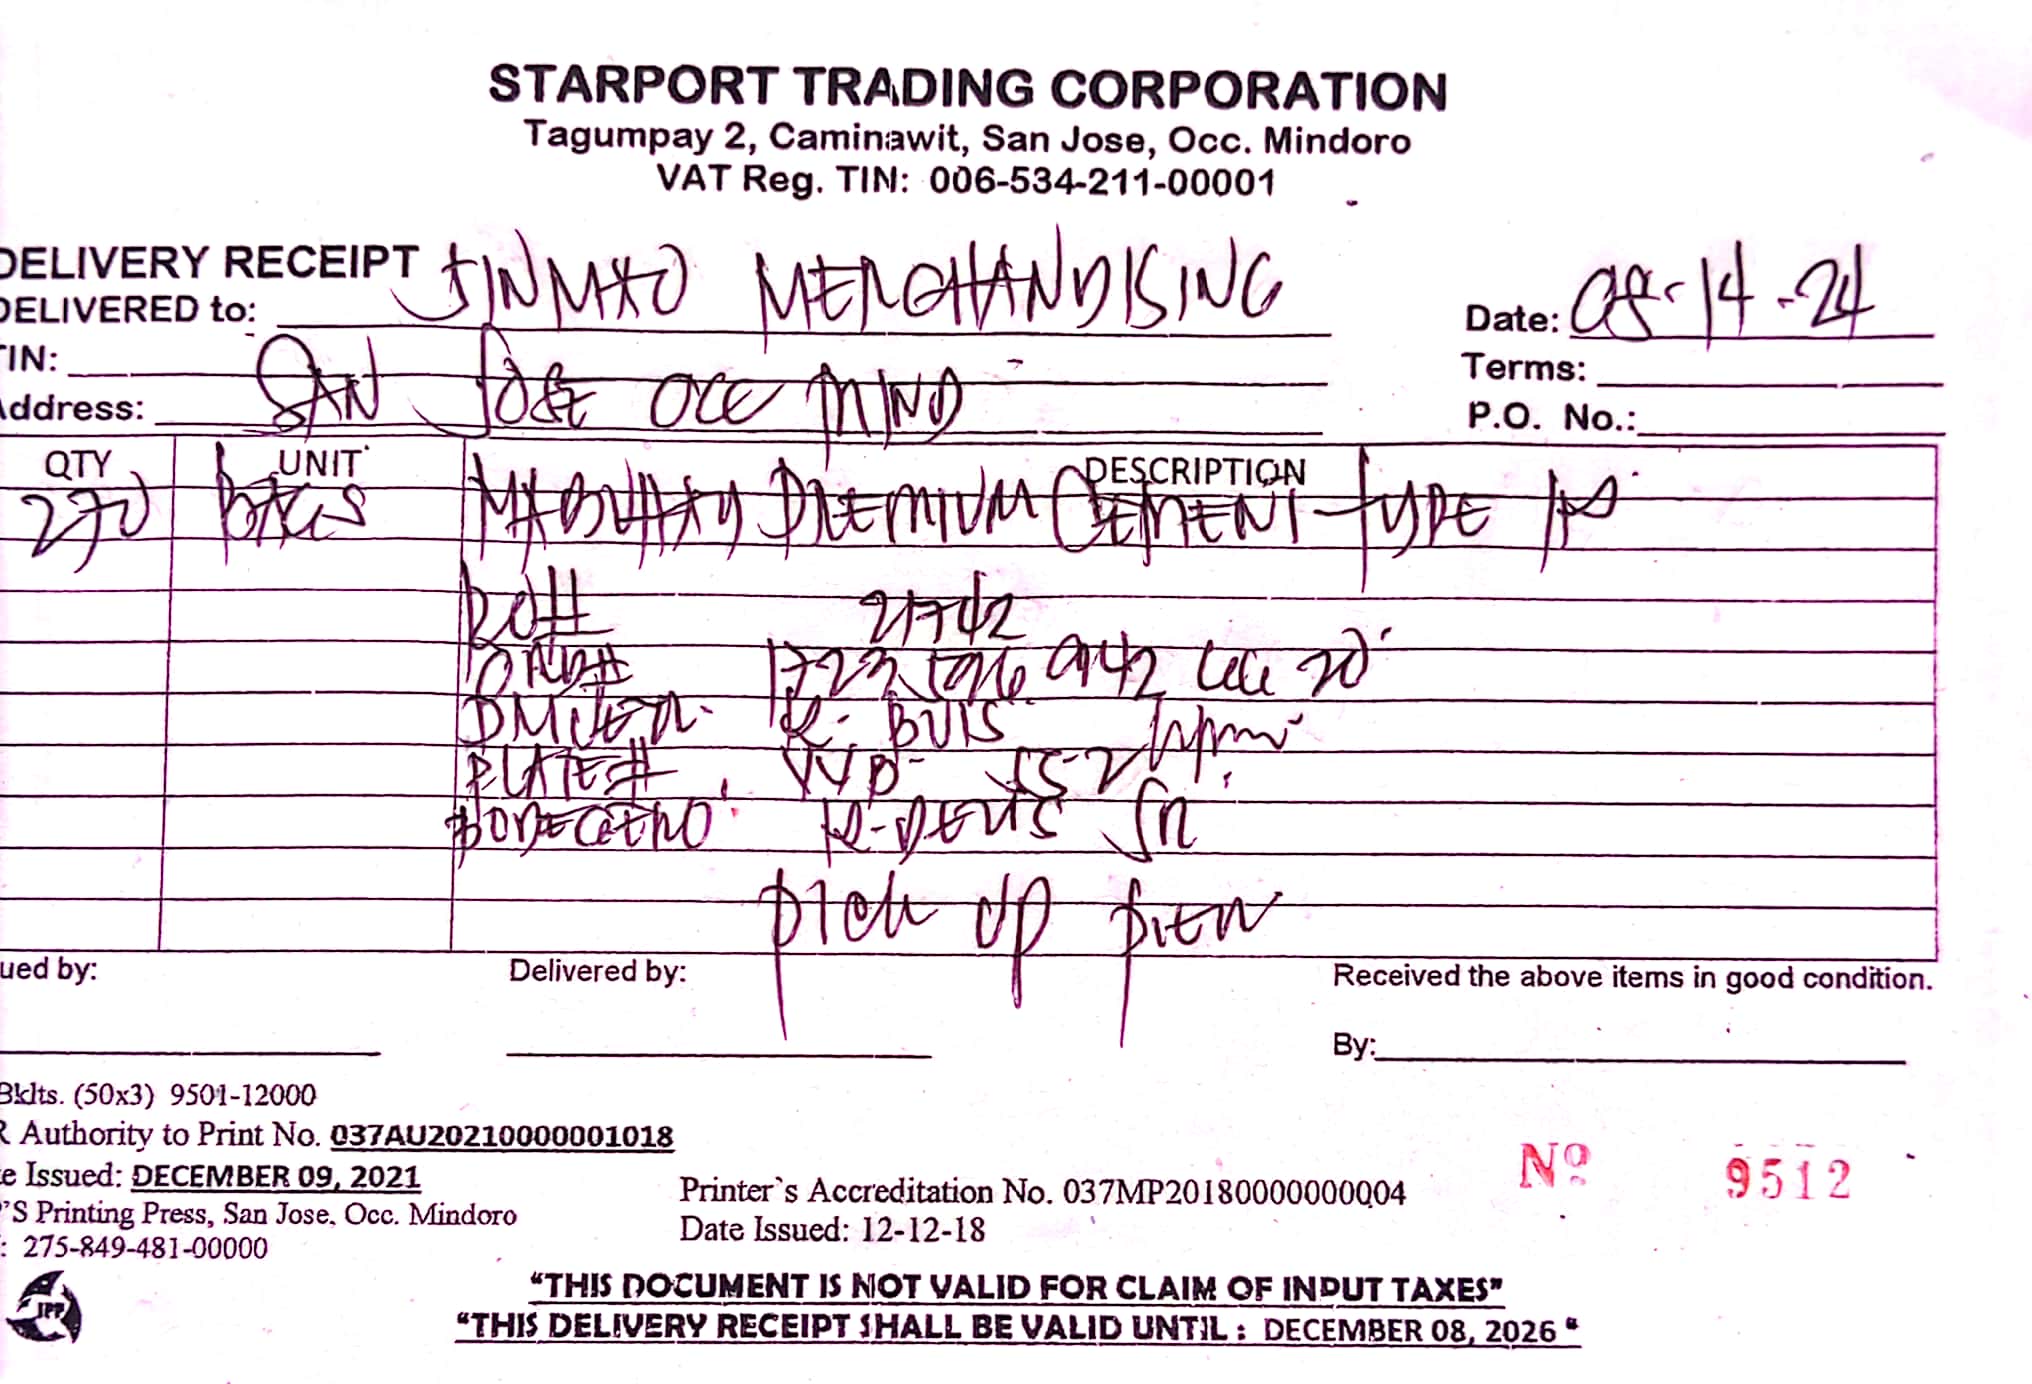 STARPORT TRADING CORPORATION
Tagumpay 2, Caminawit, San Jose, Occ. Mindoro
VAT Reg. TIN: 006-534-211-00001
DELIVERY RECEIPT
DELIVERED to: JINMAO MERCHANDISING
Date: 08-14-24
TIN:
Terms:
Address: SAN JOSE OCC MIND
P.O. No.:
QTY UNIT DESCRIPTION
270 BAGS MABUHAY PREMIUM CEMENT TYPE
DO# 21742
942 20'
DRIVER K-
PLATE# VVB- 552
BODEGERO
PICK UP PIER
ued by:
Delivered by:
Received the above items in good condition.
By:
Bklts. (50x3) 9501-12000
R Authority to Print No. 037AU20210000001018
e Issued: DECEMBER 09, 2021
'S Printing Press, San Jose, Occ. Mindoro
: 275-849-481-00000
Printer's Accreditation No. 037MP20180000000004
Date Issued: 12-12-18
Nº 9512
JPP
"THIS DOCUMENT IS NOT VALID FOR CLAIM OF INPUT TAXES"
"THIS DELIVERY RECEIPT SHALL BE VALID UNTIL : DECEMBER 08, 2026 "